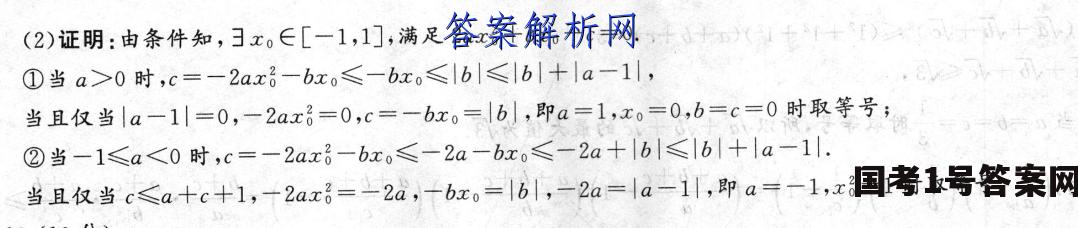 (2)证明:由条件知,∃x₀∈[-1,1],满足
答案解析网
①当 a>0 时,c=-2ax₀²-bx₀≤-bx₀≤|b|≤|b|+|a-1|,
当且仅当|a-1|=0,-2ax₀²=0,c=-bx₀=|b|,即a=1,x₀=0,b=c=0 时取等号;
②当-1≤a<0 时,c=-2ax₀²-bx₀≤-2a-bx₀≤-2a+|b|≤|b|+|a-1|.
当且仅当 c≤a+c+1,-2ax₀²=-2a,-bx₀=|b|,-2a=|a-1|,即 a=-1,
国考1号答案网